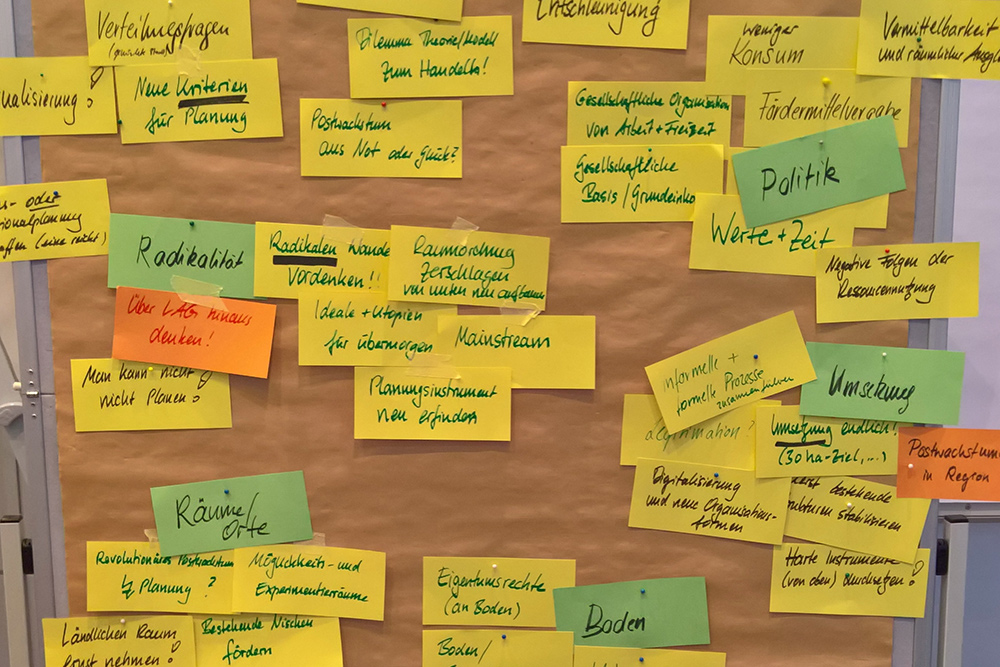 Verteilungsfragen
Neue Kriterien
für Planung
nalisierung!
Dilemma Theorie/Modell
zum Handeln!
Postwachstum
aus Not oder Glück?
Entschleunigung
weniger
Konsum
Vermittelbarkeit
und räumlicher
Fördermittelvergabe
Gesellschaftliche Organisation
von Arbeit + Freizeit
Gesellschaftliche
Basis / Grundeinko
Politik
Werte + Zeit
Negative Folgen der
Ressourcennutzung
s- oder
ionalplanung
affen (eine reicht)
Radikalität
Radikalen Wande
Vordenken!!
Raumordnung
zerschlagen
von unten neu aufbauen
Über LAGs hinaus
denken!
Ideale + Utopien
für übermorgen
Mainstream
Man kann nicht
nicht Planen!
Planungsinstrument
neu erfinden
informelle +
formelle Prozesse
zusammenführen
Umsetzung
Umsetzung endlich!
(30 ha-Ziel, ...)
Postwachstum
in Region
Digitalisierung
und neue Organisations-
formen
erst bestehende
Strukturen stabilisieren
Harte Instrumente
(von oben) durchsetzen!
Räume/
Orte
Revolutionäres Postwachstum
↯ Planung ?
Möglichkeits- und
Experimentierräume
Ländlichen Raum
ernst nehmen!
Bestehende Nischen
fördern
Eigentumsrechte
(an Boden)
Boden
Boden/